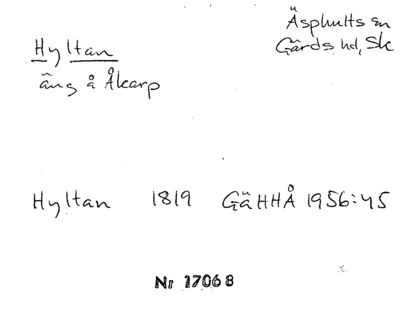 Hyltan
äng å Åkarp
Äsphults sn
Gärds hd, Sk
Hyltan 1819 GäHHÅ 1956:45
Nr 17068